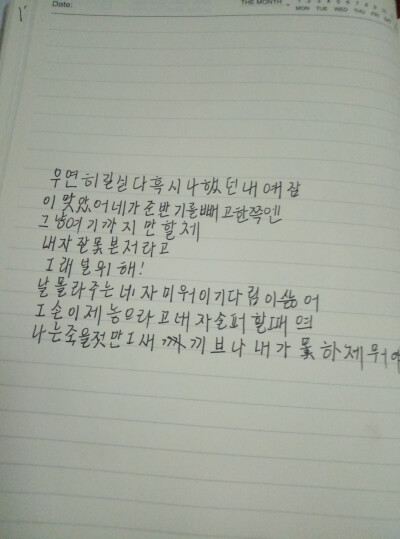 Date:
THE MONTH
MON TUE WED THU FRI
우연히 길 일 다 혹시나 했 던 내 예 감
이 맞았어 네가 준 반 기를 빼 고 한 쪽엔
그 냥 여 기 까 지 만 할 게
내 자 잘 못 본 저 라 고
그 래 널 위 해!
날 몰 라 주 는 네 자 미 워 이 기 다 림 이 싫 어
그 손 이 제 놓 으 라 고 네 자 슬 퍼 할 때 면
나 는 죽을 것 만 그 새 까 끼 브 나 내 가 못 하 제 뭐야